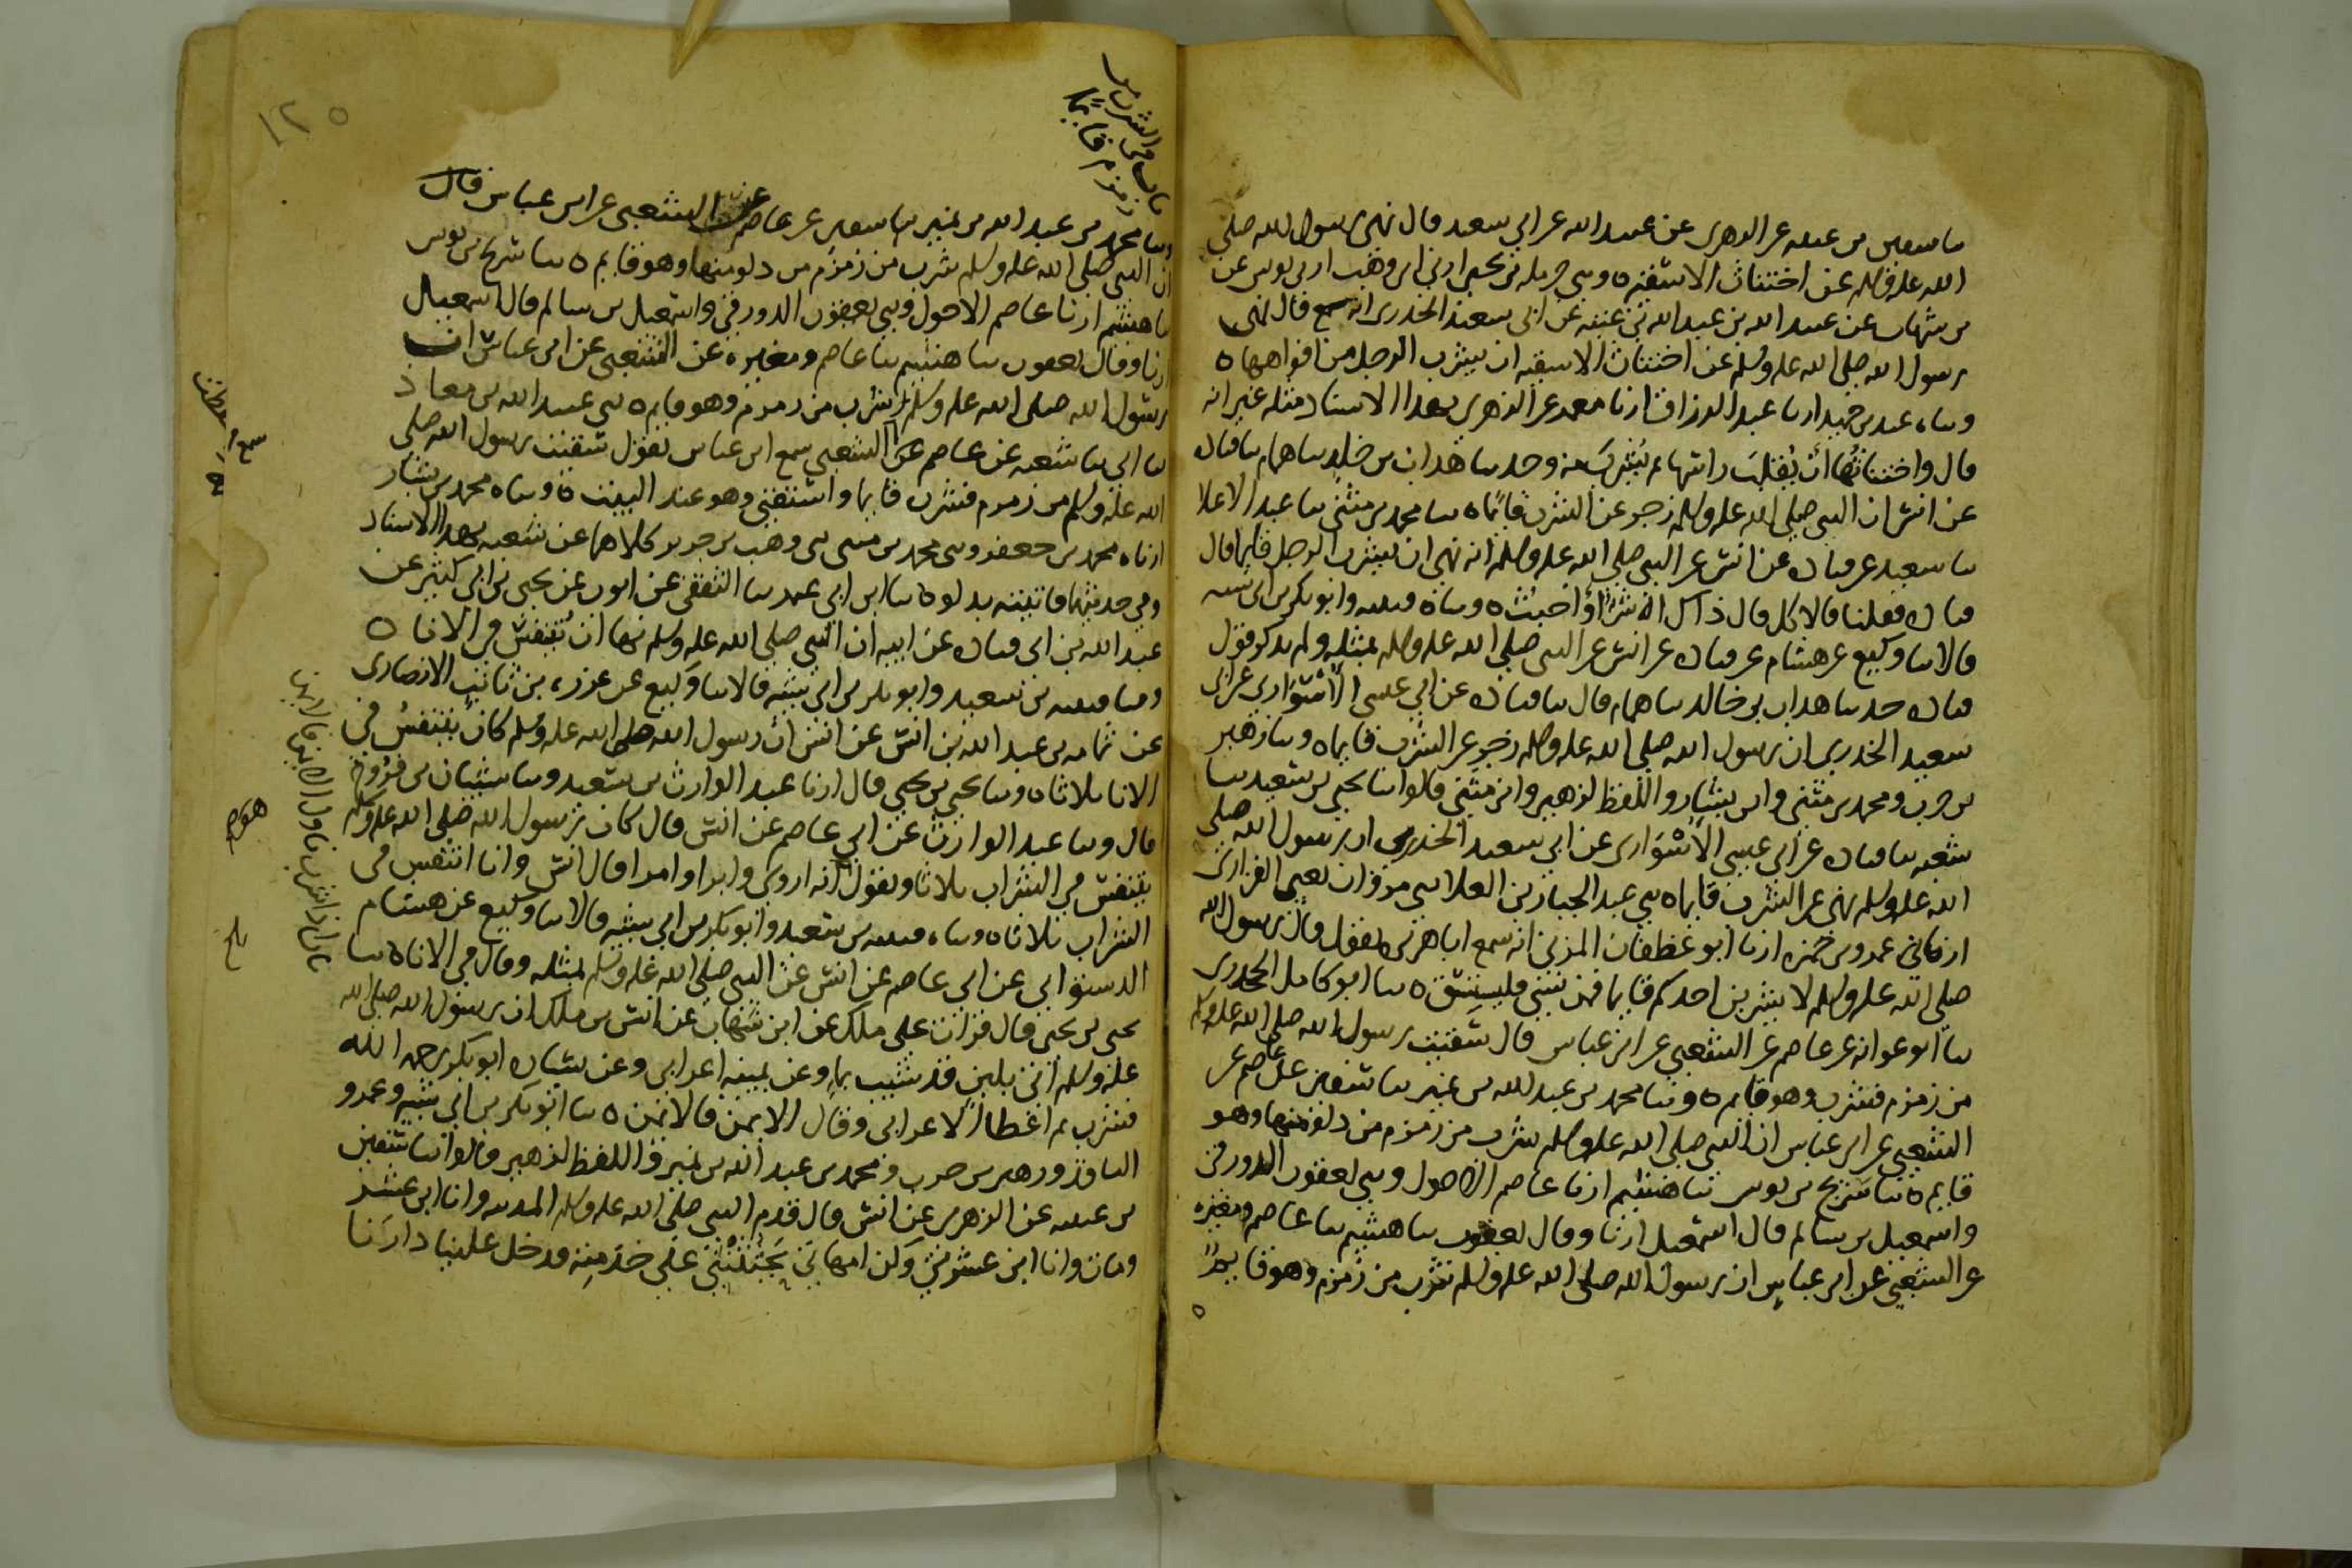 ما سفين بن عيينه عن الزهرى عن عبيد الله عن ابي سعيد قال نهى رسول الله صلى
الله عليه وسلم عن اختناث الاسقيه ٥ وحدثنى حرمله بن يحيى ارنا ابن وهب ارنى يونس عن
بن شهاب عن عبيد الله بن عبد الله بن عتبه عن ابى سعيد الخدرى انه قال نهى
رسول الله صلى الله عليه وسلم عن اختناث الاسقيه ان يشرب الرجل من افواهها ٥
وساه عبد بن حميد ارنا عبد الرزاق ارنا معمر عن الزهري بهذا الاسناد مثله غير انه
قال واختناثُها أن يُقلبَ راسها ثم يُشربَ منه وحدثنا هداب بن خلد سا همام سا قتاده
عن انس ان النبى صلى الله عليه وسلم زجر عن الشرب قائمًا ٥ سا محمد بن مثنى سا عبد الاعلا
سا سعيد عن قتاده عن انس عن النبى صلى الله عليه وسلم انه نهى ان يشرب الرجل قايما قال
قتاده فقلنا فالاكل قال ذاك اشر أو اخبث ٥ وساه قتيبه وابو بكر بن ابى شيبه
قالا سا وكيع عن هشام عن قتاده عن انس عن النبى صلى الله عليه وسلم بمثله ولم يذكر قول
قتاده حدثنا هداب بن خالد سا همام قال سا قتاده عن ابي عيسى الأسْوَاري عن ابى
سعيد الخدري ان رسول الله صلى الله عليه وسلم زجر عن الشرب قايما ٥ وسا زهير
بن حرب ومحمد بن مثنى وابن بشار واللفظ لزهير وابن مثنى قالوا سا يحيى بن سعيد سا
شعبه سا قتاده عن ابي عيسى الأُسْوَاري عن ابي سعيد الخدرى ان رسول الله صلى
الله عليه وسلم نهى عن الشرب قايما ٥ سى عبد الجبار بن العلا سى مروان يعنى الفزارى
ارنا عمر بن حمزه ارنا ابو غطفان المزنى انه سمع ابا هريره يقول قال رسول الله
صلى الله عليه وسلم لا يشربن احدكم قايما فمن نسى فليستقى ٥ سا ابو كامل الجحدرى
سا ابو عوانه عن عاصم عن الشعبي عن ابن عباس قال سقيت رسول الله صلى الله عليه وسلم
من زمزم فشرب وهو قايم ٥ وسا محمد بن عبد الله بن نمير سا سفين عن عاصم عن
الشعبي عن ابن عباس ان النبي صلى الله عليه وسلم شرب من زمزم من دلو منها وهو
قايم ٥ سا سريج بن يونس سا هشيم ارنا عاصم الاحول وسى يعقوب الدورقى
واسمعيل بن سالم قال اسمعيل ارنا وقال يعقوب سا هشيم سا عاصم ومغيره
عن الشعبي عن ابن عباس ان رسول الله صلى الله عليه وسلم شرب من زمزم وهو قايم
١٢٥
باب فى الشرب من
زمزم قايمًا
وسا محمد بن عبد الله بن نمير سا سفين عن عاصم عن الشعبي عن ابن عباس قال
ان النبي صلى الله عليه وسلم شرب من زمزم من دلو منها وهو قايم ٥ سا سريج بن يونس
سا هشيم ارنا عاصم الاحول وسى يعقوب الدورقى واسمعيل بن سالم قال اسمعيل
ارنا وقال يعقوب سا هشيم سا عاصم ومغيره عن الشعبي عن ابن عباس ان
رسول الله صلى الله عليه وسلم شرب من زمزم وهو قايم ٥ سى عبيد الله بن معاذ
سا ابي سا شعبه عن عاصم عن الشعبي سمع ابن عباس يقول سقيت رسول الله صلى
الله عليه وسلم من زمزم فشرب قايما واستسقى وهو عند البيت ٥ وساه محمد بن بشار
ارناه محمد بن جعفر وسى محمد بن مثنى سى وهب بن جرير كلاهما عن شعبه بهذا الاسناد
وفي حديثهما فاتيته بدلو ٥ سا ابن ابي عمر سا الثقفى عن ايوب عن يحيى بن ابي كثير عن
عبد الله بن ابى قتاده عن ابيه ان النبى صلى الله عليه وسلم نها ان يُتنفسَ فى الانا ٥
وسا قتيبه بن سعيد وابو بكر بن ابى شيبه قالا سا وكيع عن عزره بن ثابت الانصارى
عن ثمامه بن عبد الله بن انس عن انس ان رسول الله صلى الله عليه وسلم كان يتنفسُ في
الانا ثلاثا ٥ وسا يحيى بن يحيى قال ارنا عبد الوارث بن سعيد وسا شيبان بن فرُّوخ
قال وسا عبد الوارث عن ابي عاصم عن انس قال كان رسول الله صلى الله عليه وسلم
يتنفس في الشراب ثلاثا ويقول انه اروى وابرا وامرا قال انس وانا اتنفس فى
الشراب ثلاثا ٥ وساه قتيبه بن سعيد وابو بكر بن ابي شيبه قالا سا وكيع عن هشام
الدستوائي عن ابي عاصم عن انس عن النبي صلى الله عليه وسلم بمثله وقال في الاناء ٥ سا
يحيى بن يحيى قال قرات على ملك عن ابن شهاب عن انس بن ملك ان رسول الله صلى الله
عليه وسلم اتى بلبن قد شيب بماء وعن يمينه اعرابي وعن يساره ابو بكر رحمه الله
فشرب ثم اعطا الاعرابى وقال الايمن فالايمن ٥ سا ابو بكر بن ابى شيبه وعمرو
الناقد وزهير بن حرب ومحمد بن عبد الله بن نمير واللفظ لزهير قالوا سا سفين
بن عيينه عن الزهري عن انس قال قدم النبى صلى الله عليه وسلم المدينه وانا ابن عشر
ومات وانا ابن عشرين وكن امهاتى يَحثُثْنَنى على خدمته فدخل علينا دارَنا